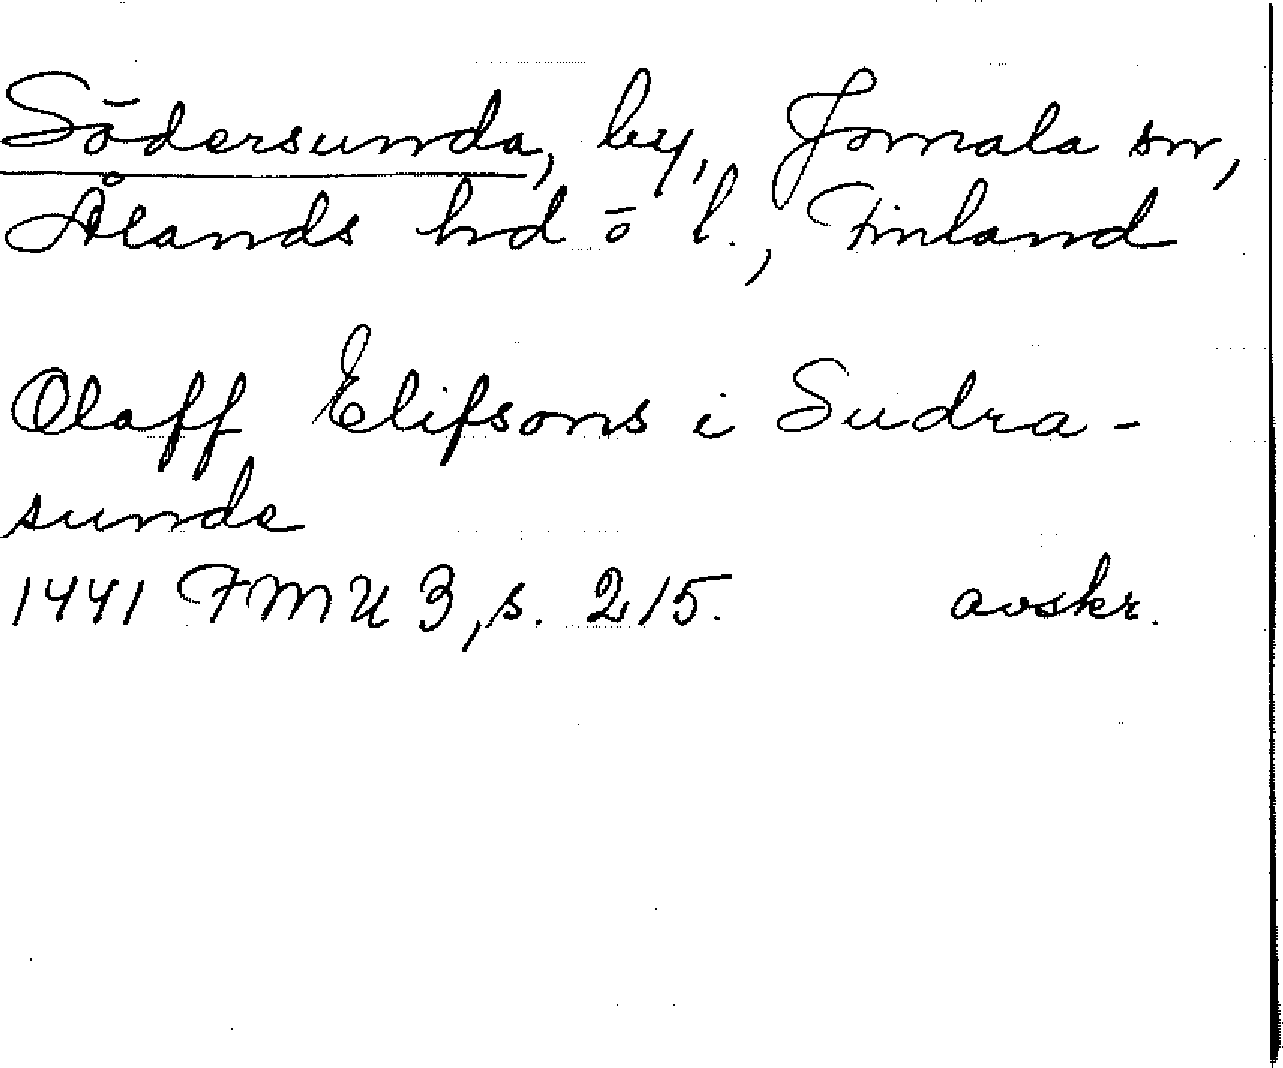 Södersunda, by, Jomala sn,
Ålands hd ö l., Finland
Olaff Elifsons i Sudra-
sunde
1441 FMU 3, s. 215. avskr.